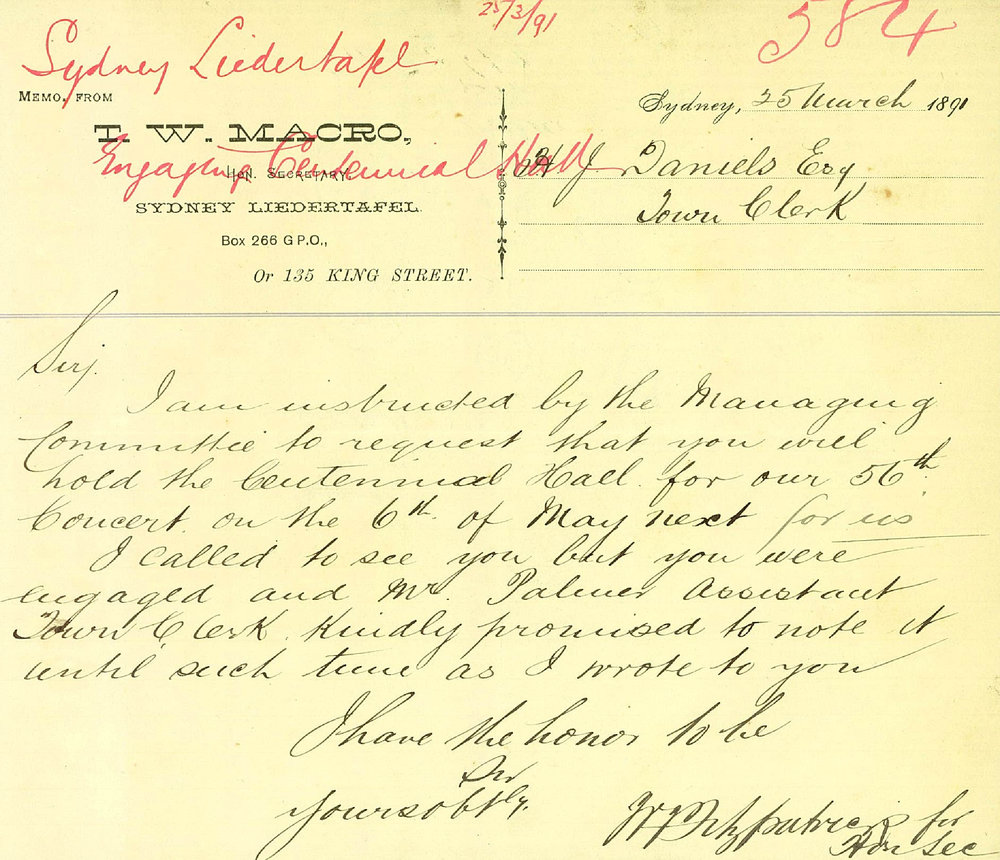 25/3/91
584
Sydney Liedertafel
MEMO. FROM
T. W. MACRO,
Engaging Centennial Hall
HON. SECRETARY
SYDNEY LIEDERTAFEL.
Box 266 G P.O.,
Or 135 KING STREET.
Sydney, 25 March 1891
H J Daniels Esq
Town Clerk
Sir,
I am instructed by the Managing
Committee to request that you will
hold the Centennial Hall for our 56th
Concert on the 6th of May next for us
I called to see you but you were
engaged and Mr. Palmer Assistant
Town Clerk kindly promised to note it
until such time as I wrote to you
I have the honor to be
Sir
Yours obtly.
Fitzpatrick for
Hon Sec